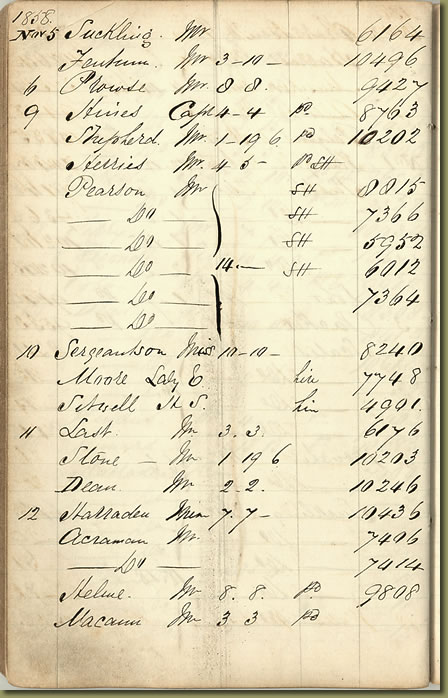 1858.
Nov 5 Suckling. Mr 6164
Fentum. Mr 3-10- 10496
6 Prowse Mr. 8 8. 9427
9 Hines Capt 4-4 pd 8763
Shepherd. Mr. 1-19 6. pd 10202
Herries Mr. 4 5- pd SH
Pearson Mr SH 8815
Do SH 7366
Do SH 5952
Do 14- SH 6012
Do 7364
Do
10 Sergeantson Miss 10-10- 8240
Moore Lady E lin 7748
Sitwell H S. lin 4991.
11 Last. Mr 3. 3. 6176
Stone - Mr. 1 19 6 10203
Dean. Mr 2-2. 10246
12 Harraden 7.7- 10436
Acraman Mr. 7406
Do 7414
Helme. Mr 8. 8. pd 9808
Macann Mr 3 3 pd